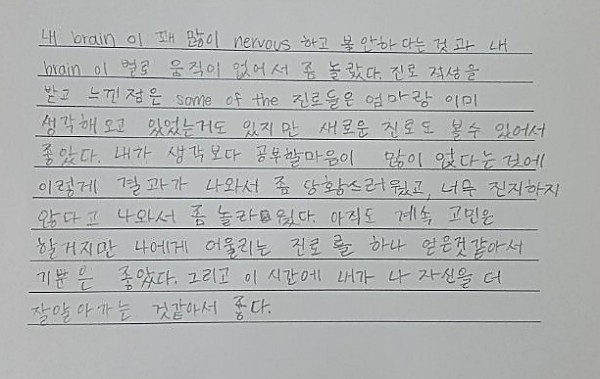 내 brain 이 꽤 많이 nervous 하고 불안하다는 것과 내
brain 이 별로 움직이 없어서 좀 놀랐다. 진로 적성을
받고 느낀점은 some of the 진로들은 엄마랑 이미
생각해오고 있었는거도 있지만 새로운 진로도 볼수 있어서
좋았다. 내가 생각보다 공부할마음이 많이 없다는것에
이렇게 결과가 나와서 좀 당황스러웠고, 너무 진지하지
않다고 나와서 좀 놀라웠다. 아직도 계속 고민은
할거지만 나에게 어울리는 진로를 하나 얻은것같아서
기분은 좋았다. 그리고 이 시간에 내가 나 자신을 더
잘알아가는 것같아서 좋다.